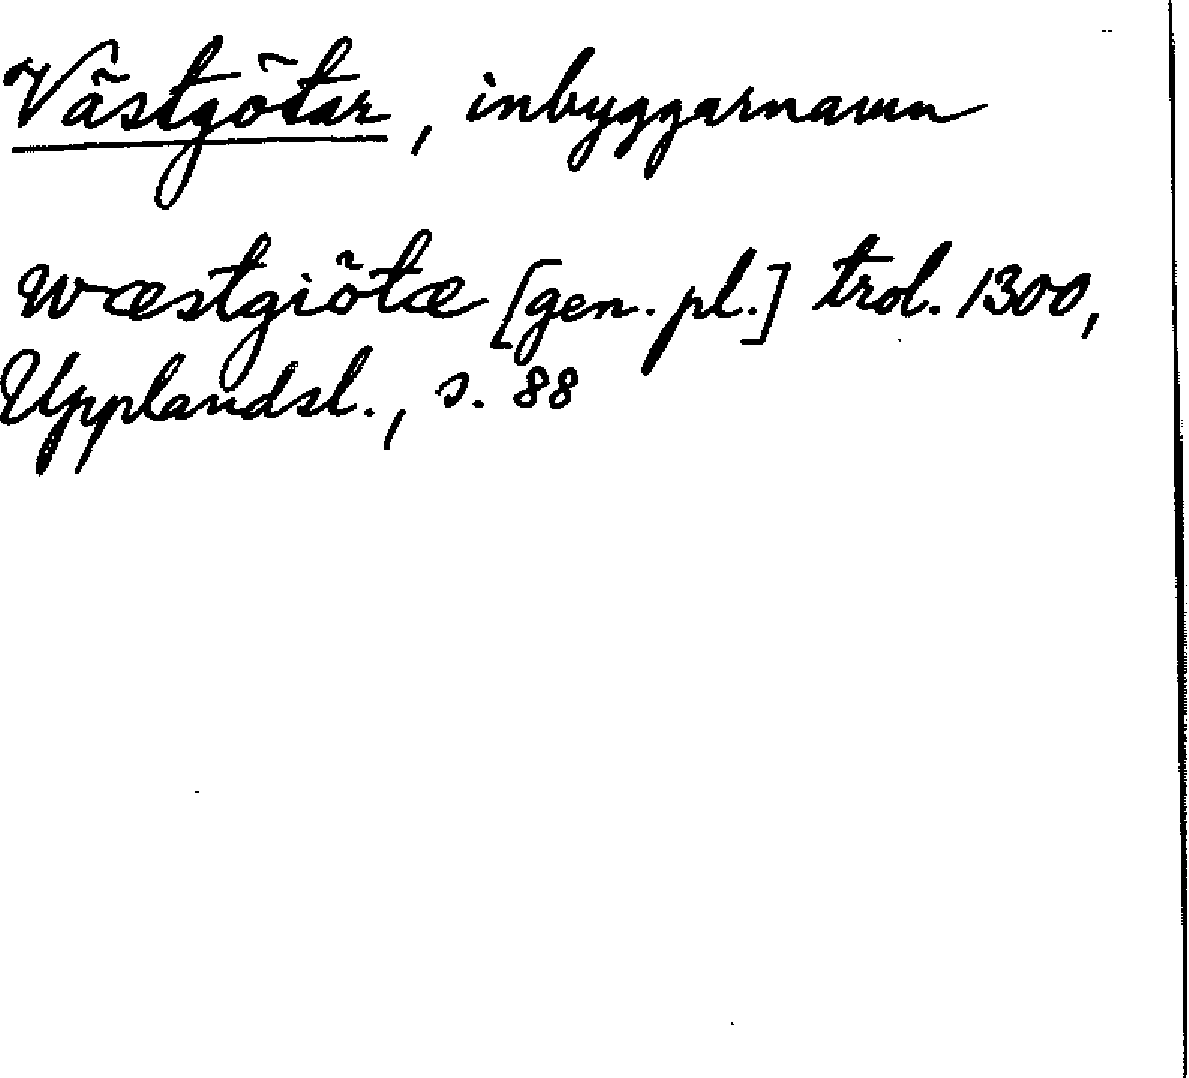 Västgötar, inbyggarnamn
wæstgiötæ [gen. pl.] trol. 1300,
Upplandsl., s. 88